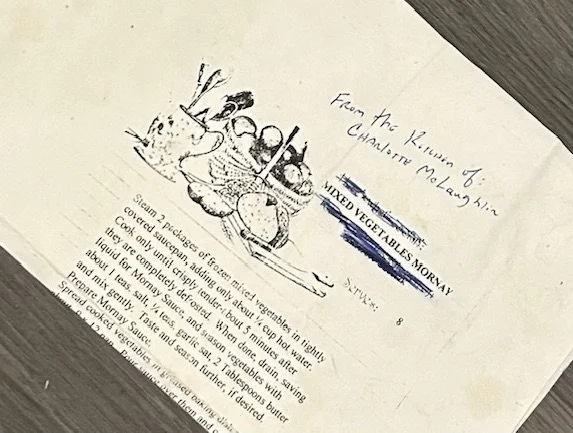 From the Kitchen of:
CHARlotte McLaughlin
MIXED VEGETABLES MORNAY
Serves: 8
Steam 2 packages of frozen mixed vegetables in tightly
covered saucepan, adding only about ¼ cup hot water.
Cook only until crisply tender, about 5 minutes after
they are completely defrosted. When done, drain, saving
liquid for Mornay Sauce, and season vegetables with
about 1 teas. salt, ½ teas. garlic salt, 2 Tablespoons butter
and mix gently. Taste and season further, if desired.
Prepare Mornay Sauce.
Spread cooked vegetables in greased baking dish
sauce over them and